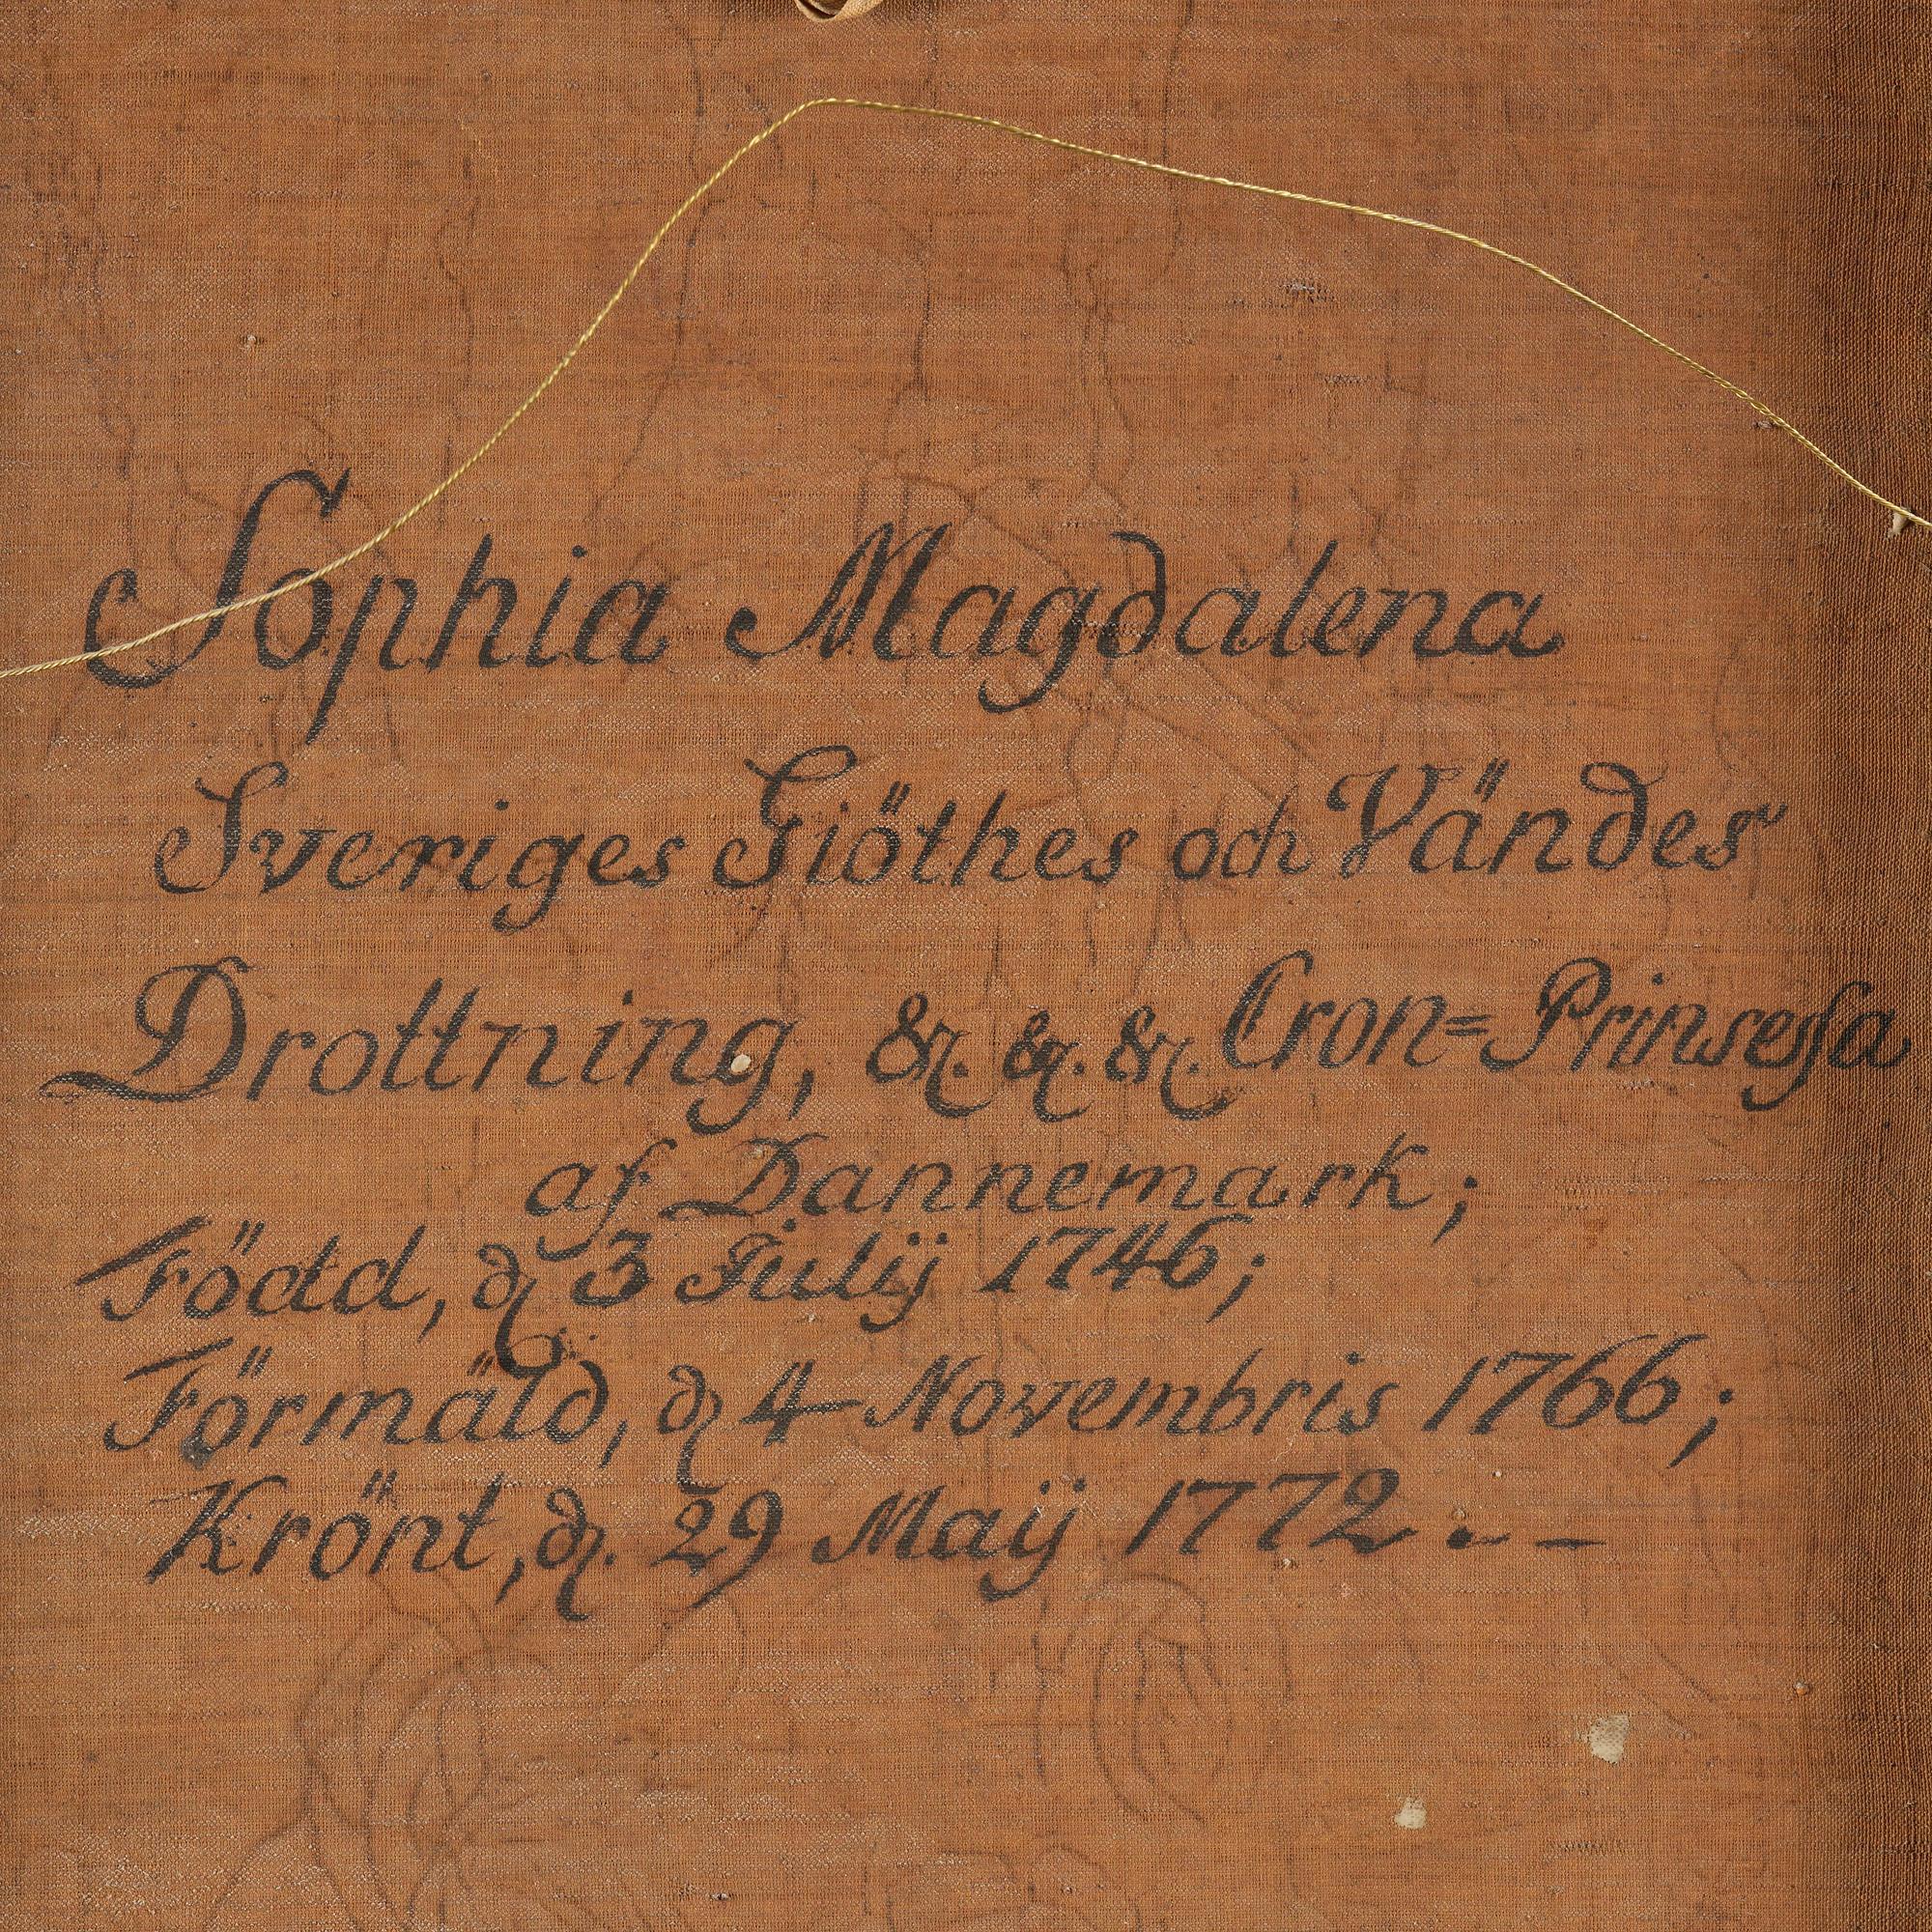 Sophia Magdalena
Sveriges Giöthes och Vändes
Drottning, &c. &c. &c. Cron= Prinsessa
af Dannemark;
Född, d. 3 Julij 1746;
Förmäld, d. 4 Novembris 1766;
Krönt, d. 29 Maij 1772. –